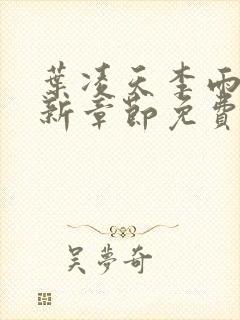 葉凌天李雨
新章節免費
吴夢奇